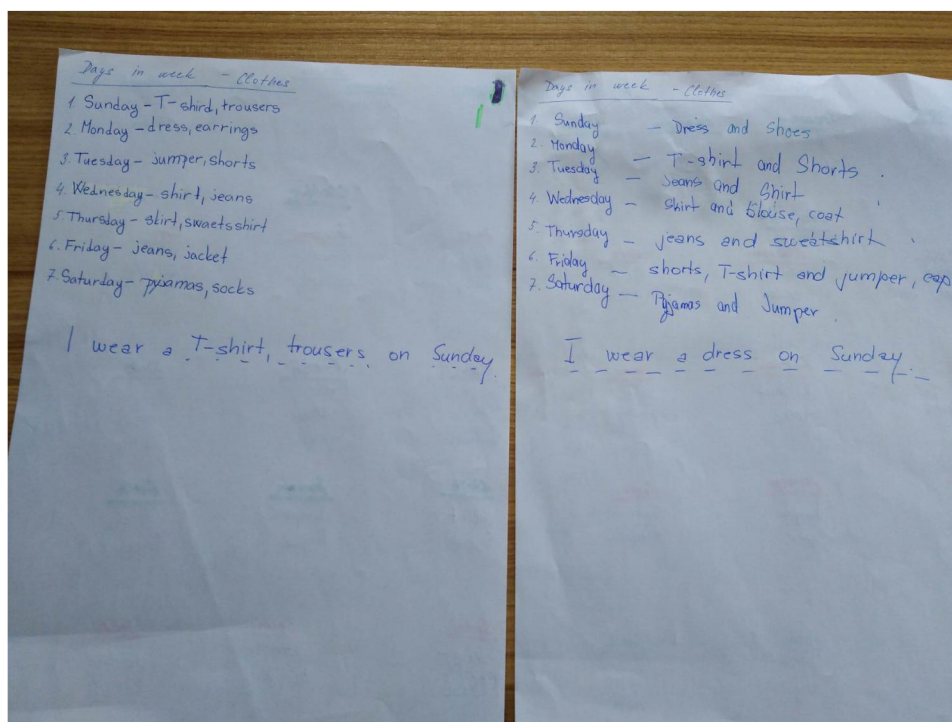 Days in week - Clothes
1. Sunday - T-shird, trousers
2. Monday - dress, earrings
3. Tuesday - jumper, shorts
4. Wednesday - shirt, jeans
5. Thursday - skirt, swaetsshirt
6. Friday - jeans, jacket
7. Saturday - pyjamas, socks
I wear a T-shirt, trousers on Sunday.
Days in week - Clothes
1. Sunday - Dress and Shoes
2. Monday - T-shirt and Shorts.
3. Tuesday - Jeans and Shirt
4. Wednesday - Skirt and Blouse, coat
5. Thursday - jeans and sweatshirt.
6. Friday - shorts, T-shirt and jumper, cap
7. Saturday - Pyjamas and Jumper.
I wear a dress on Sunday.